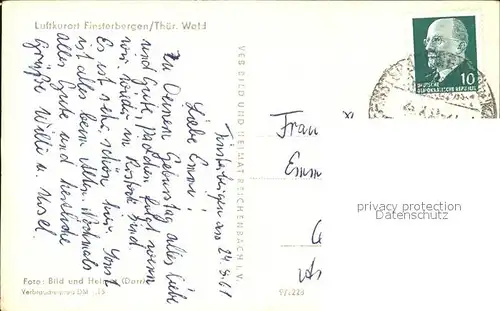 Luftkurort Finsterbergen/Thür. Wald
Finsterbergen den 24.8.61
Liebe Emmi!
Zu Deinem Geburtstag alles Liebe
und Gute, Päckchen folgt wenn
wir wieder in Rostock sind.
Es ist sehr schön hier, sonst
ist alles beim Alten. Nochmals
alles Gute und herzliche
Grüße Willi u. Ursel.
VEB BILD UND HEIMAT REICHENBACH I. V.
Foto: Bild und Heimat
Verbraucherpreis DM
DEUTSCHE
DEMOKRATISCHE REPUBLIK
10
Frau
Emm
privacy protection
Datenschutz